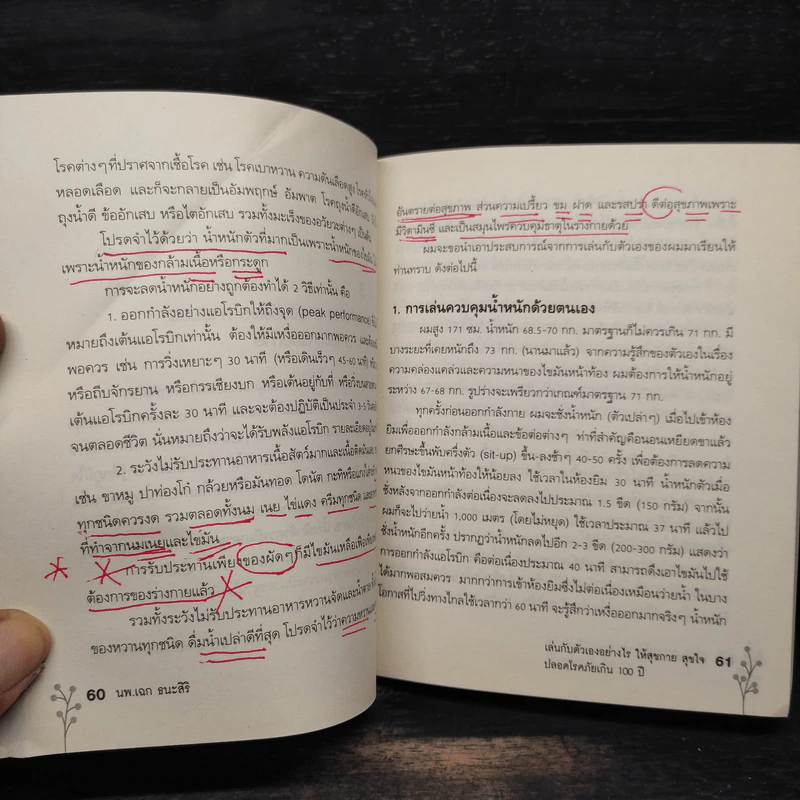 โรคต่างๆ ที่ปราศจากเชื้อโรค เช่น โรคเบาหวาน ความดันโลหิตสูง
หลอดเลือด และก็จะกลายเป็นอัมพฤกษ์ อัมพาต โรคถุงน้ำดีอักเสบ
ถุงน้ำดี ข้ออักเสบ หรือไตอักเสบ รวมทั้งมะเร็งของอวัยวะต่างๆ เป็นต้น
โปรดจำไว้ด้วยว่า น้ำหนักตัวที่มากเป็นเพราะน้ำหนักของไขมัน
เพราะน้ำหนักของกล้ามเนื้อหรือกระดูก
การจะลดน้ำหนักอย่างถูกต้องทำได้ 2 วิธีเท่านั้น คือ
1. ออกกำลังอย่างแอโรบิกให้ถึงจุด (peak performance)
หมายถึงเต้นแอโรบิกเท่านั้น ต้องให้มีเหงื่อออกมากพอควร
พอควร เช่น การวิ่งเหยาะๆ 30 นาที (หรือเดินเร็วๆ 45-60 นาที)
หรือถีบจักรยาน หรือกรรเชียงบก หรือเต้นอยู่กับที่ หรือวิ่งบนสายพาน
เต้นแอโรบิกครั้งละ 30 นาที และจะต้องปฏิบัติเป็นประจำ 3-5
จนตลอดชีวิต นั่นหมายถึงว่าจะได้รับพลังแอโรบิก
2. ระวังไม่รับประทานอาหารเนื้อสัตว์มากและเนื้อติดมัน
เช่น ขาหมู ปาท่องโก๋ กล้วยหรือมันทอด โดนัต กะทิหรือแกงใส่กะทิ
ทุกชนิดควรงด รวมตลอดทั้งนม เนย ไข่แดง ครีมทุกชนิด
ที่ทำจากนมเนยและไขมัน
การรับประทานเพียงของผัดๆ ก็มีไขมันเหลือเฟือเกิน
ต้องการของร่างกายแล้ว
รวมทั้งระวังไม่รับประทานอาหารหวานจัดและน้ำตาล
ของหวานทุกชนิด ดื่มน้ำเปล่าดีที่สุด โปรดจำไว้ว่าความหวาน
60 นพ.เฉก ธนะสิริ
อันตรายต่อสุขภาพ ส่วนความเปรี้ยว ขม ฝาด และรสปร่า ดีต่อสุขภาพเพราะ
มีวิตามินซี และเป็นสมุนไพรควบคุมธาตุในร่างกายด้วย
ผมจะขอนำเอาประสบการณ์จากการเล่นกับตัวเองของผมมาเรียนให้
ท่านทราบ ดังต่อไปนี้
1. การเล่นควบคุมน้ำหนักด้วยตนเอง
ผมสูง 171 ซม. น้ำหนัก 68.5-70 กก. มาตรฐานก็ไม่ควรเกิน 71 กก. มี
บางระยะที่เคยหนักถึง 73 กก. (นานมาแล้ว) จากความรู้สึกของตัวเองในเรื่อง
ความคล่องแคล่วและความหนาของไขมันหน้าท้อง ผมต้องการให้น้ำหนักอยู่
ระหว่าง 67-68 กก. รูปร่างจะเพรียวกว่าเกณฑ์มาตรฐาน 71 กก.
ทุกครั้งก่อนออกกำลังกาย ผมจะชั่งน้ำหนัก (ตัวเปล่าๆ) เมื่อไปเข้าห้อง
ยิมเพื่อออกกำลังกล้ามเนื้อและข้อต่อต่างๆ ท่าที่สำคัญคือนอนเหยียดขาแล้ว
ยกศีรษะขึ้นพับครึ่งตัว (sit-up) ขึ้น-ลงช้าๆ 40-50 ครั้ง เพื่อต้องการลดความ
หนาของไขมันหน้าท้องให้น้อยลง ใช้เวลาในห้องยิม 30 นาที น้ำหนักตัวเมื่อ
ชั่งหลังจากออกกำลังต่อเนื่องจะลดลงไปประมาณ 1.5 ขีด (150 กรัม) จากนั้น
ผมก็จะไปว่ายน้ำ 1,000 เมตร (โดยไม่หยุด) ใช้เวลาประมาณ 37 นาที แล้วไป
ชั่งน้ำหนักอีกครั้ง ปรากฏว่าน้ำหนักลดไปอีก 2-3 ขีด (200-300 กรัม) แสดงว่า
การออกกำลังแอโรบิก คือต่อเนื่องประมาณ 40 นาที สามารถดึงเอาไขมันไปใช้
ได้มากพอสมควร มากกว่าการเข้าห้องยิมซึ่งไม่ต่อเนื่องเหมือนว่ายน้ำ ในบาง
โอกาสที่ไปวิ่งทางไกลใช้เวลากว่า 60 นาที จะรู้สึกว่าเหงื่อออกมากจริงๆ น้ำหนัก
เล่นกับตัวเองอย่างไร ให้สุขกาย สุขใจ 61
ปลอดโรคภัยเกิน 100 ปี